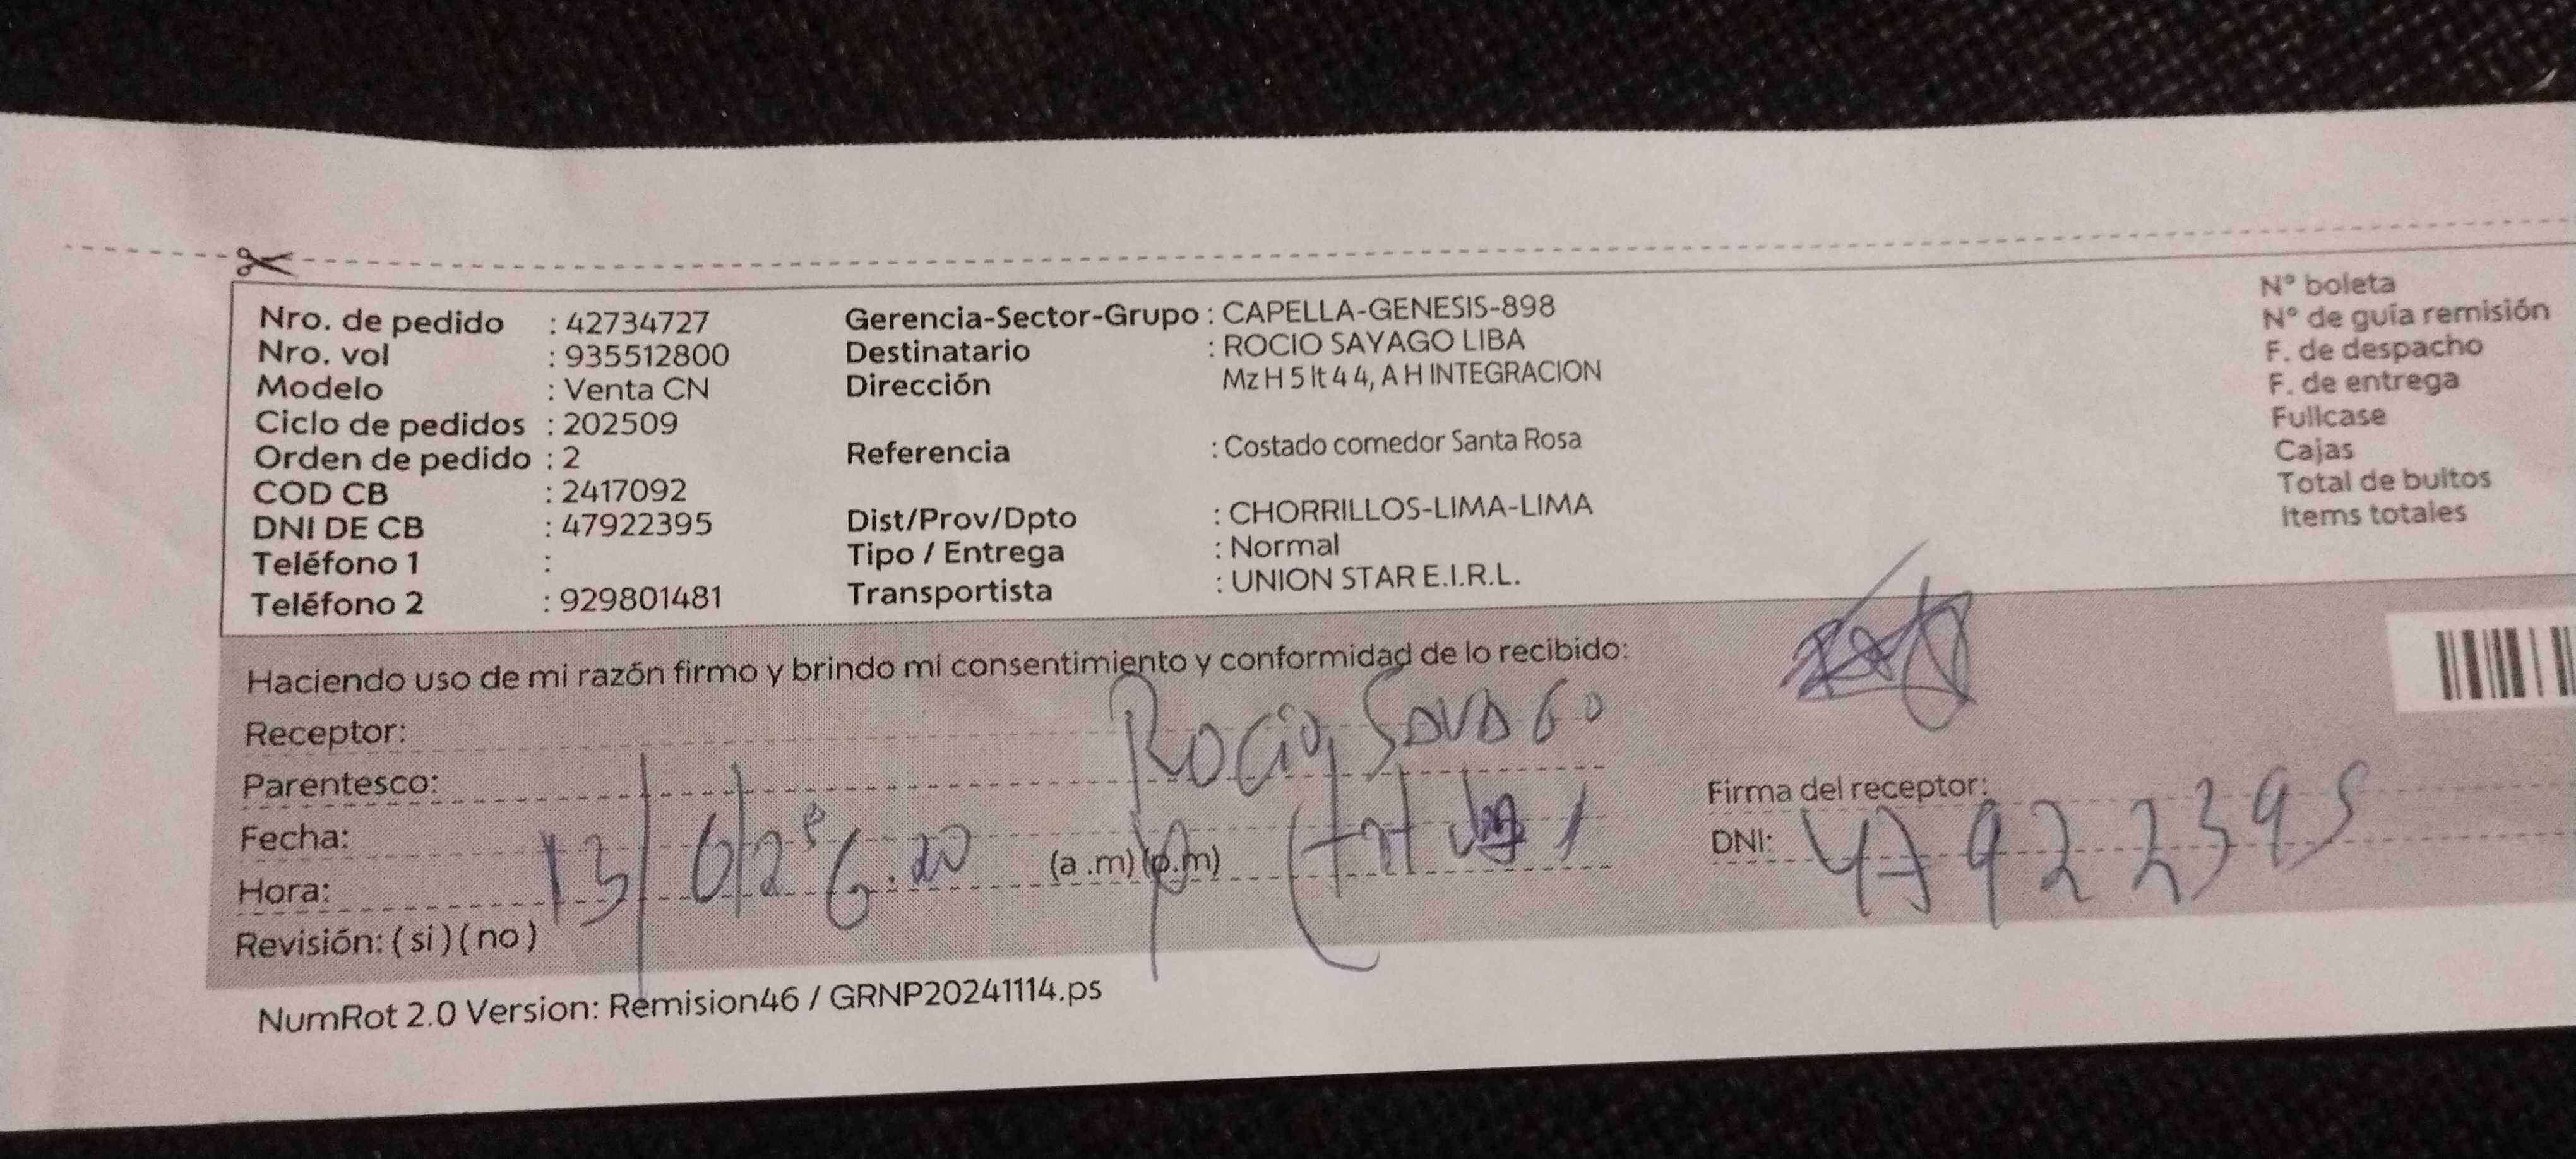 Nro. de pedido : 42734727
Nro. vol : 935512800
Modelo : Venta CN
Ciclo de pedidos : 202509
Orden de pedido : 2
COD CB : 2417092
DNI DE CB : 47922395
Teléfono 1 :
Teléfono 2 : 929801481
Gerencia-Sector-Grupo : CAPELLA-GENESIS-898
Destinatario : ROCIO SAYAGO LIBA
Dirección Mz H 5 lt 4 4, A H INTEGRACION
Referencia : Costado comedor Santa Rosa
Dist/Prov/Dpto : CHORRILLOS-LIMA-LIMA
Tipo / Entrega : Normal
Transportista : UNION STAR E.I.R.L.
N° boleta
N° de guía remisión
F. de despacho
F. de entrega
Fullcase
Cajas
Total de bultos
Items totales
Haciendo uso de mi razón firmo y brindo mi consentimiento y conformidad de lo recibido:
Receptor: Rocio Sayago
Parentesco:
Fecha: 13/6/2
Hora: 6:20 (a.m) (p.m)
Revisión: ( si ) ( no )
Firma del receptor:
DNI: 47922395
NumRot 2.0 Version: Remision46 / GRNP20241114.ps